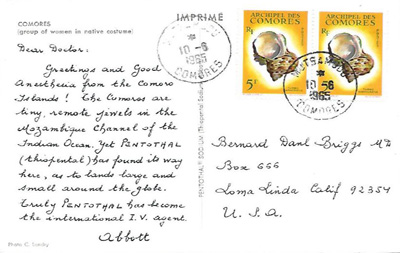 COMORES
(group of women in native costume)
IMPRIME
Dear Doctor:
Greetings and Good
Anesthesia from the Comoro
Islands! The Comoros are
tiny, remote jewels in the
Mozambique Channel of the
Indian Ocean. Yet PENTOTHAL
(thiopental) has found its way
here, as to lands large and
small around the globe.
Truly PENTOTHAL has become
the international I.V. agent.
Abbott
PENTOTHAL SODIUM (Thiopental Sodium
10-6
1965
COMORES
ARCHIPEL DES
COMORES
5F
ARCHIPEL DES
COMORES
MUTSAMUDU
10-6
1965
COMORES
Bernard Danl Briggs MD
Box 666
Loma Linda Calif 92354
U. S. A.